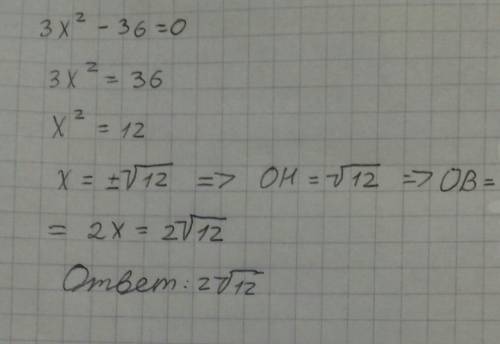 3x² - 36 = 0
3x² = 36
x² = 12
x = ±√12 => OH = √12 => OB =
= 2x = 2√12
Ответ: 2√12